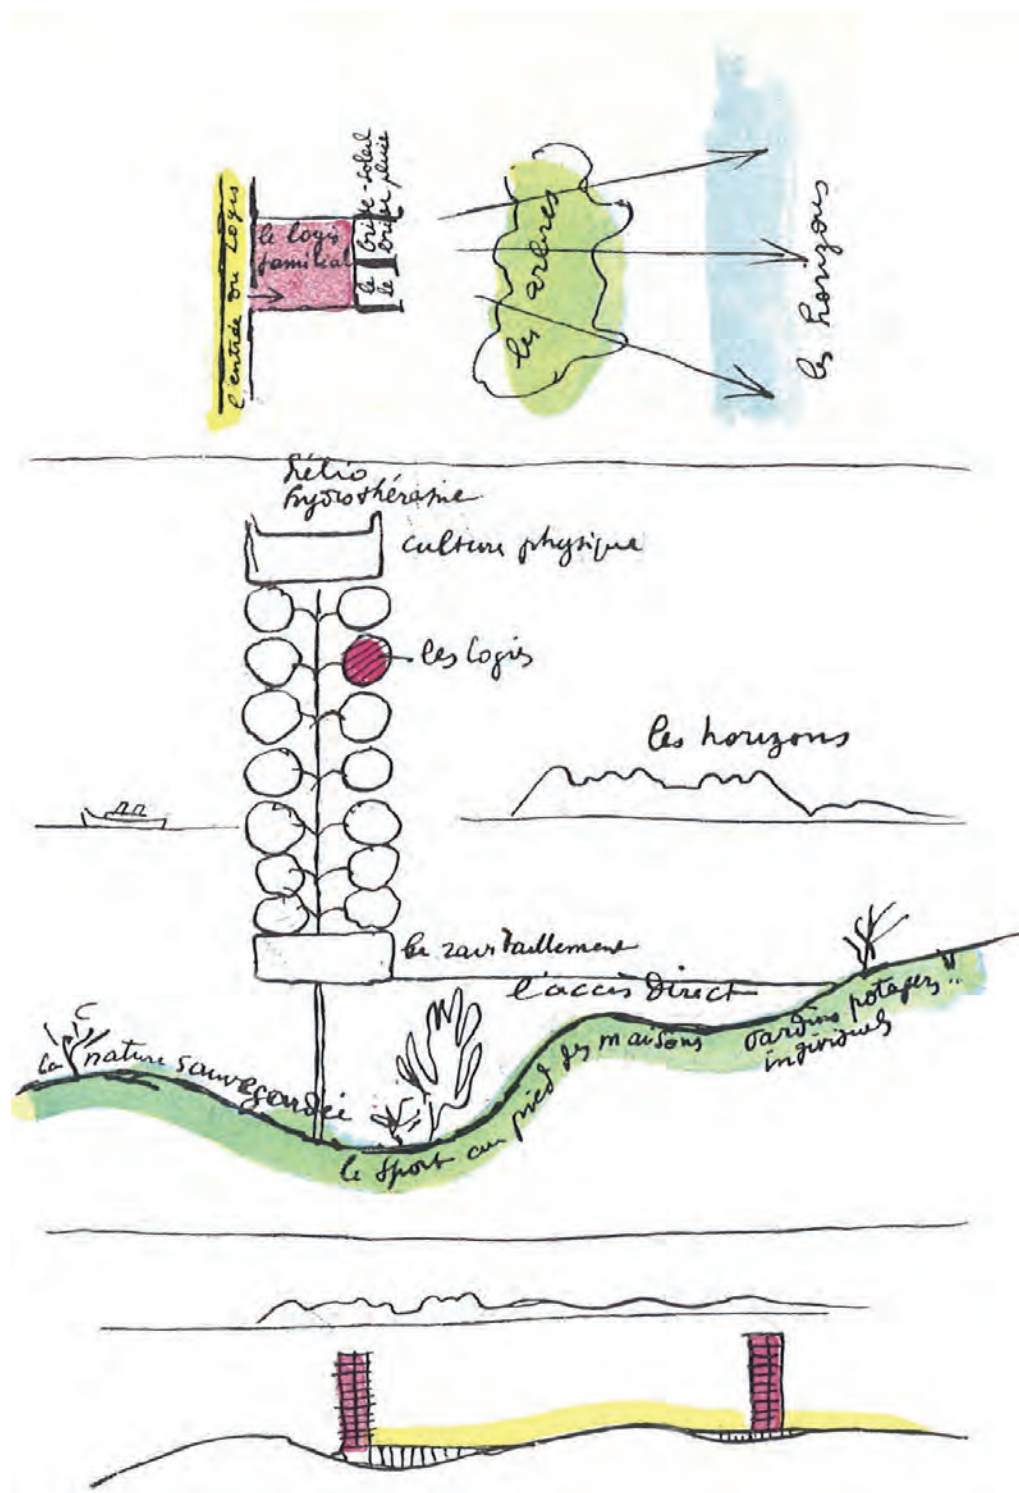 l'entrée du logis
le logis
familial
le brise-soleil
le brise pluie
les arbres
les horizons
hélio
hydrothérapie
culture physique
les logis
les horizons
le ravitaillement
l'accès direct
la nature sauvegardée
le sport au pied des maisons
Jardins potagers
individuels